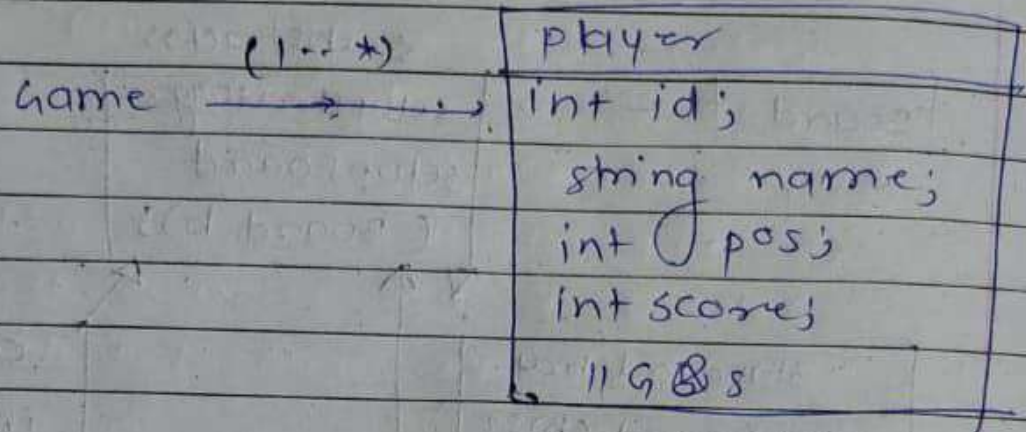 player
(1..*)
Game
int id;
string name;
int pos;
int score;
// G & S